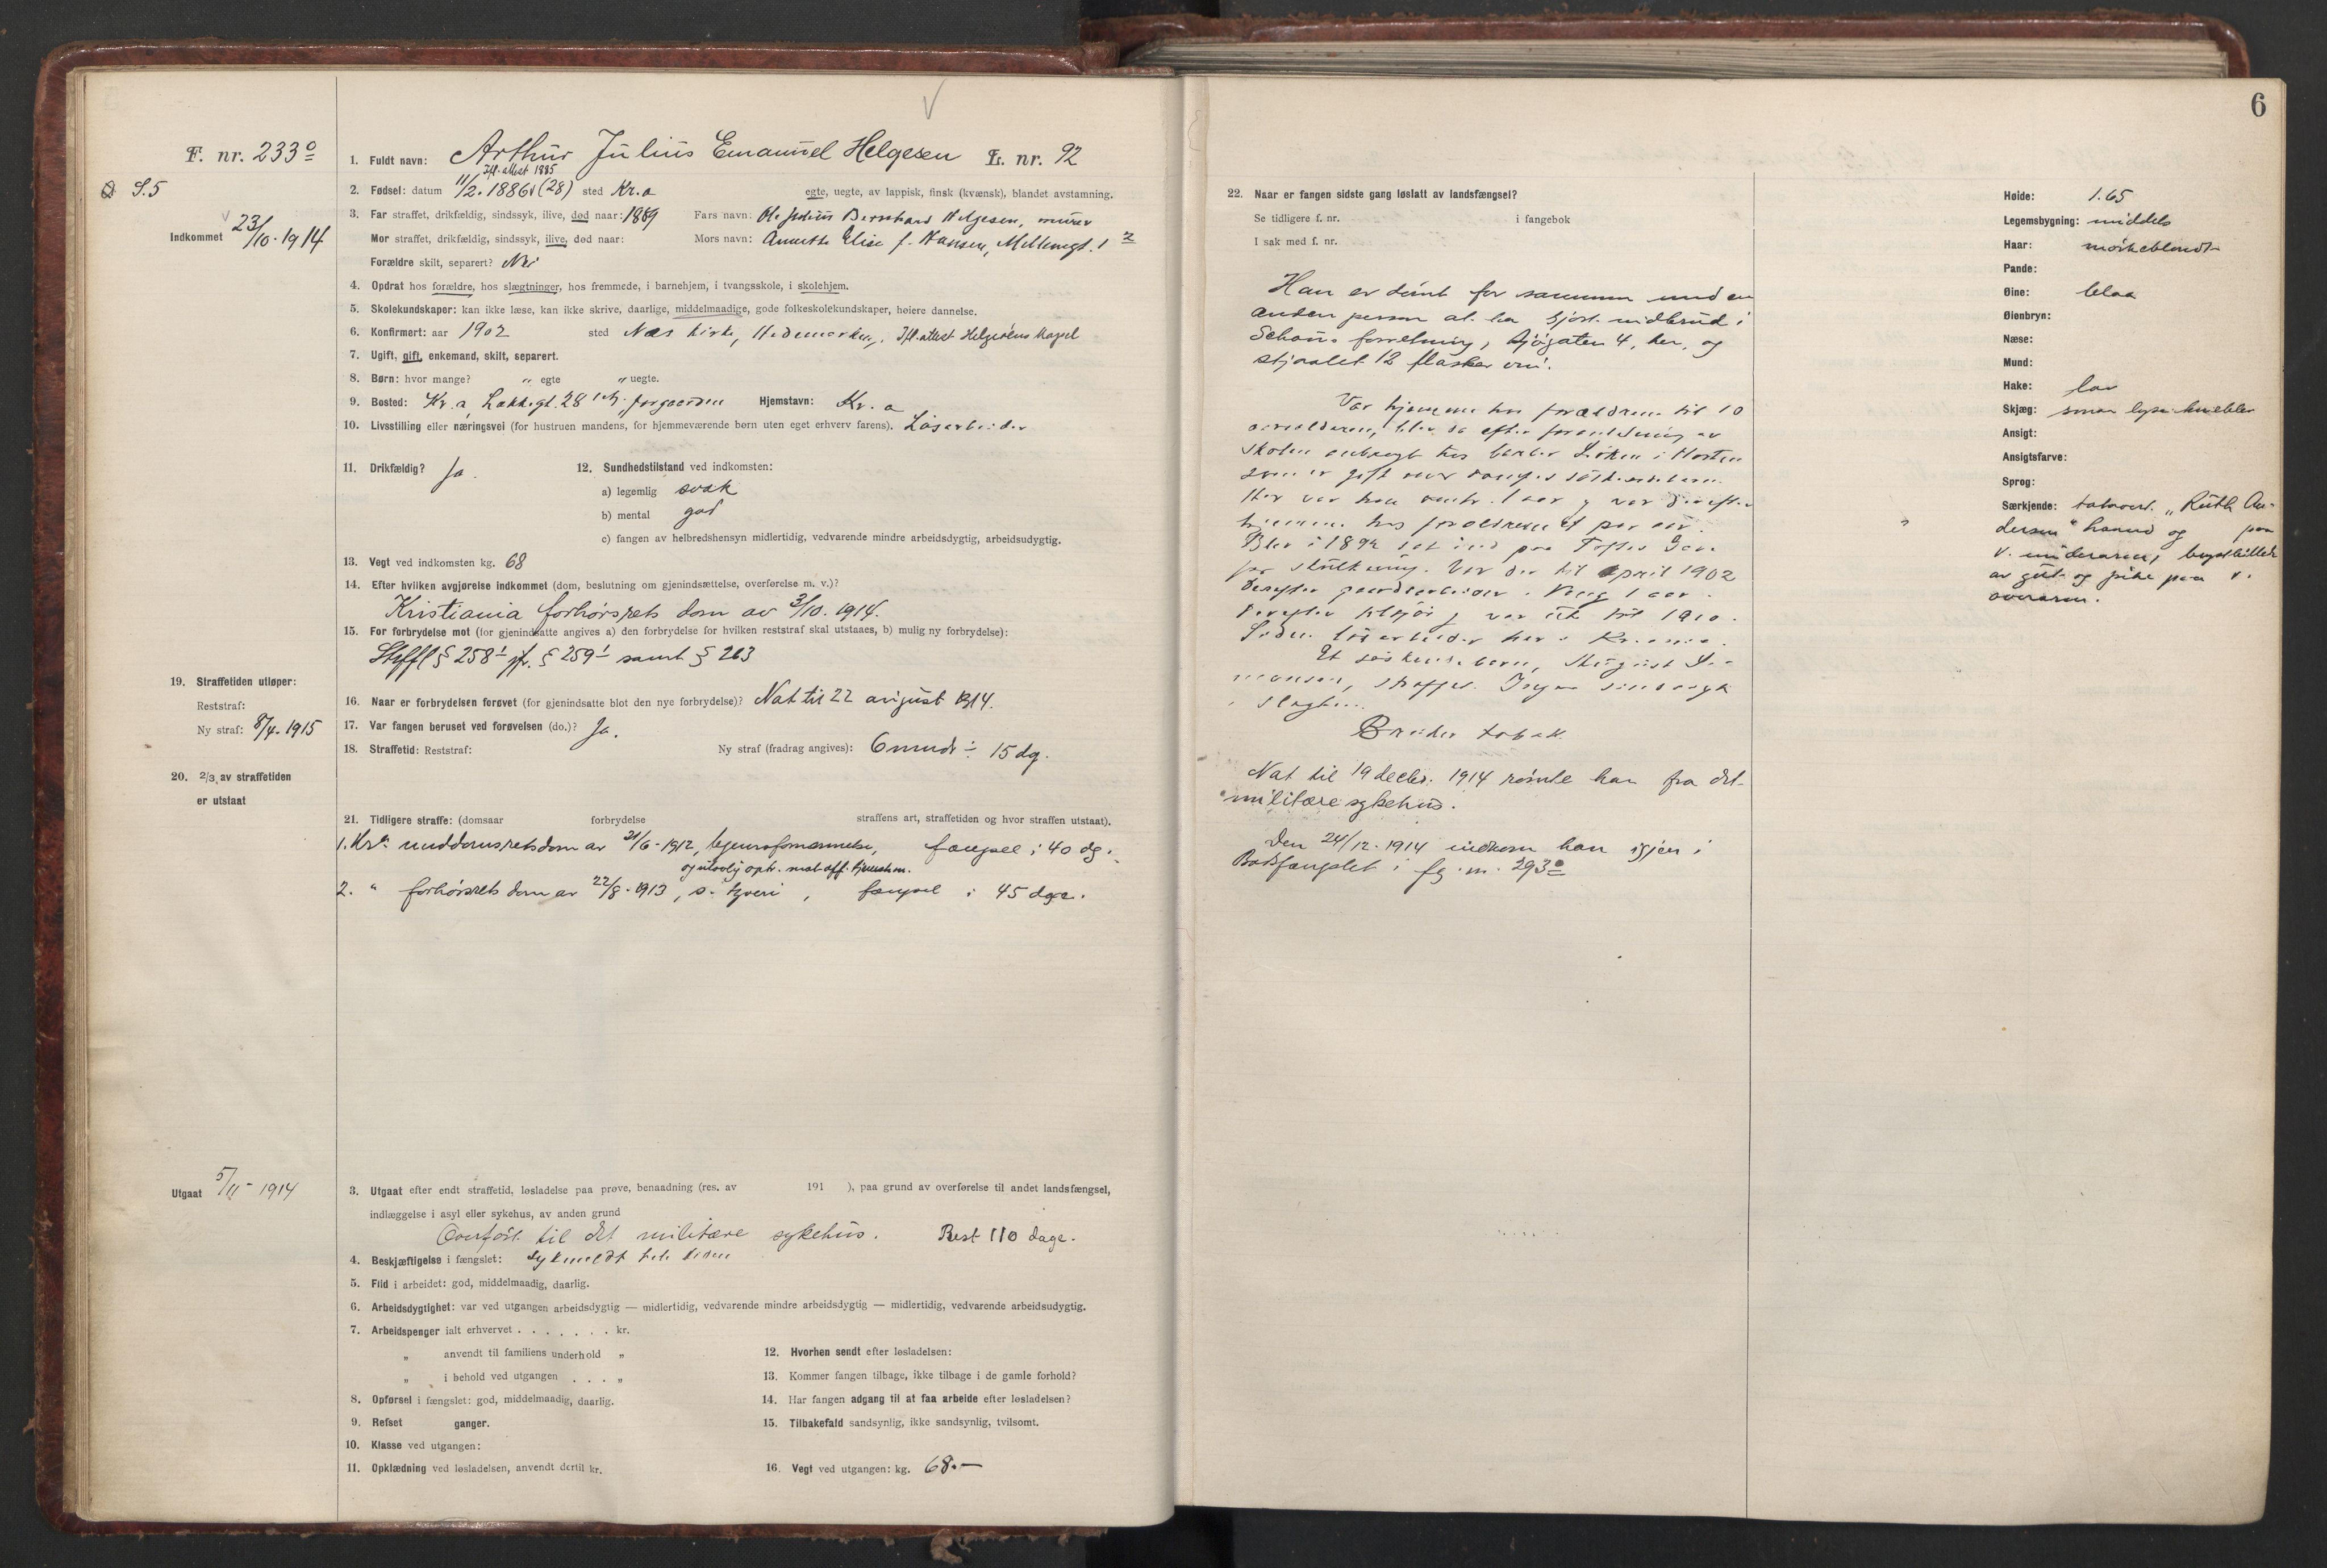 6
F. nr. 233º
S. 5
Indkommet 23/10-1914
1. Fuldt navn: Arthur Julius Emanuel Helgesen L. nr. 92
Ifl. attest 1885
2. Fødsel: datum 11/2. 1886 (28) sted Kr.a egte, uegte, av lappisk, finsk (kvænsk), blandet avstamning.
3. Far straffet, drikfældig, sindssyk, ilive, død naar: 1889 Fars navn: Ole Julius Bernhard Helgesen, murer
Mor straffet, drikfældig, sindssyk, ilive, død naar: Mors navn: Annette Elise f. Hansen, Møllergt. 1
Forældre skilt, separert? Nei
4. Opdrat hos forældre, hos slægtninger, hos fremmede, i barnehjem, i tvangsskole, i skolehjem.
5. Skolekundskaper: kan ikke læse, kan ikke skrive, daarlige, middelmaadige, gode folkeskolekundskaper, høiere dannelse.
6. Konfirmert: aar 1902 sted Næs kirke, Hedemarken, Ifl. attest Helgøens kapel
7. Ugift, gift, enkemand, skilt, separert.
8. Børn: hvor mange? „ egte „ uegte.
9. Bosted: Kr.a, Lakkegt. 28 Hjemstavn: Kr.a
10. Livsstilling eller næringsvei (for hustruen mandens, for hjemmeværende børn uten eget erhverv farens). Løsarbeider
11. Drikfældig? Ja. 12. Sundhedstilstand ved indkomsten:
a) legemlig svak
b) mental god
c) fangen av helbredshensyn midlertidig, vedvarende mindre arbeidsdygtig, arbeidsudygtig.
13. Vegt ved indkomsten kg. 68
14. Efter hvilken avgjørelse indkommet (dom, beslutning om gjenindsættelse, overførelse m. v.)?
Kristiania forhørsrets dom av 3/10. 1914.
15. For forbrydelse mot (for gjenindsatte angives a) den forbrydelse for hvilken reststraf skal utstaaes, b) mulig ny forbrydelse):
Stffl § 258¹ jfr. § 259¹ samt § 263
19. Straffetiden utløper:
Reststraf:
Ny straf: 8/4-1915
16. Naar er forbrydelsen forøvet (for gjenindsatte blot den nye forbrydelse)? Nat til 22 august 1914.
17. Var fangen beruset ved forøvelsen (do.)? Ja.
18. Straffetid: Reststraf: Ny straf (fradrag angives): 6 mndr ÷ 15 dg.
20. 2/3 av straffetiden
er utstaat
21. Tidligere straffe: (domsaar forbrydelse straffens art, straffetiden og hvor straffen utstaat).
1. Kr.a meddomsretsdom av 21/6-1912, legemsfornærmelse, fængsel i 40 dg.
og utvolig optr. mot off. tjenestm.
2. " forhørsrets dom av 22/8-1913, s. tyveri, fængsel i 45 dge.
Utgaat 5/11-1914
3. Utgaat efter endt straffetid, løsladelse paa prøve, benaadning (res. av 191 ), paa grund av overførelse til andet landsfængsel,
indlæggelse i asyl eller sykehus, av anden grund
Overført til det militære sykehus. Rest 110 dage.
4. Beskjæftigelse i fængslet: Sykmeldt hele tiden
5. Flid i arbeidet: god, middelmaadig, daarlig.
6. Arbeidsdygtighet: var ved utgangen arbeidsdygtig — midlertidig, vedvarende mindre arbeidsdygtig — midlertidig, vedvarende arbeidsudygtig.
7. Arbeidspenger ialt erhvervet . . . . . . . kr.
„ anvendt til familiens underhold „
„ i behold ved utgangen . . . „
8. Opførsel i fængslet: god, middelmaadig, daarlig.
9. Refset ganger.
10. Klasse ved utgangen:
11. Opklædning ved løsladelsen, anvendt dertil kr.
12. Hvorhen sendt efter løsladelsen:
13. Kommer fangen tilbage, ikke tilbage i de gamle forhold?
14. Har fangen adgang til at faa arbeide efter løsladelsen?
15. Tilbakefald sandsynlig, ikke sandsynlig, tvilsomt.
16. Vegt ved utgangen: kg. 68.—
22. Naar er fangen sidste gang løslatt av landsfængsel?
Se tidligere f. nr. i fangebok
I sak med f. nr.
Han er dømt for sammen med en
anden person at ha gjort indbrud i
Schous forretning, Sjøgaten 4, her, og
stjaalet 12 flasker vin.
Var hjemme hos forældrene til 10
aarsalderen, blev da efter foranledning av
skolen anbragt hos
som er gift med fangens
Her var han omtr. 1 aar og var derefter
hjemme hos forældrene et par aar.
Blev i 1892 sat ind paa Toftes Gave
for skulking. Var der til april 1902
derefter gaardsarbeider i 1 aar.
Derefter tilsjøs og var ute til 1910.
Siden løsarbeider her i Kr.ania.
Et søskendebarn, August Si-
monsen, straffet. Ingen sindssyk
i slegten.
Bruker tobak.
Nat til 19 decbr. 1914 rømte han fra det
militære sykehus.
Den 24/12-1914 indkom han igjen i
Botsfængslet i fg. nr. 293º
Høide: 1.65
Legemsbygning: middels
Haar: mørkeblondt
Pande:
Øine: blaa
Øienbryn:
Næse:
Mund:
Hake: lav
Skjæg: smaa lyse knebler
Ansigt:
Ansigtsfarve:
Sprog:
Særkjende: tatovert „Ruth An-
dersen" haand og paa
v. underarm, brystbillede
av gut og pike paa v.
overarm.